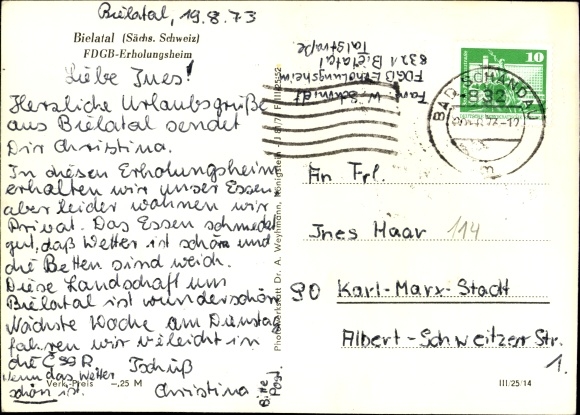 Bielatal, 19.8.73
Bielatal (Sächs. Schweiz)
FDGB-Erholungsheim
Liebe Ines!
Herzliche Urlaubsgrüße
aus Bielatal sendet
Dir Christina.
In diesen Erholungsheim
erhalten wir unser Essen,
aber leider wohnen wir
Privat. Das Essen schmeckt
gut, daß Wetter ist schön und
die Betten sind weich.
Diese Landschaft um
Bielatal ist wunderschön
Nächste Woche am Dienstag
fahren wir vileicht in
die ČSSR. Tschüß
Wenn das Wetter
schön ist. Christina
Verk.-Preis —,25 M
Bitte
Post.
Fam. W. Schmidt
FDGB Erholungsheim
8321 Bielatal
Talstraße
10
BAD SCHANDAU
832
An Frl.
Ines Haar 114
90 Karl-Marx-Stadt
Albert-Schweitzer Str.
1.
III/25/14